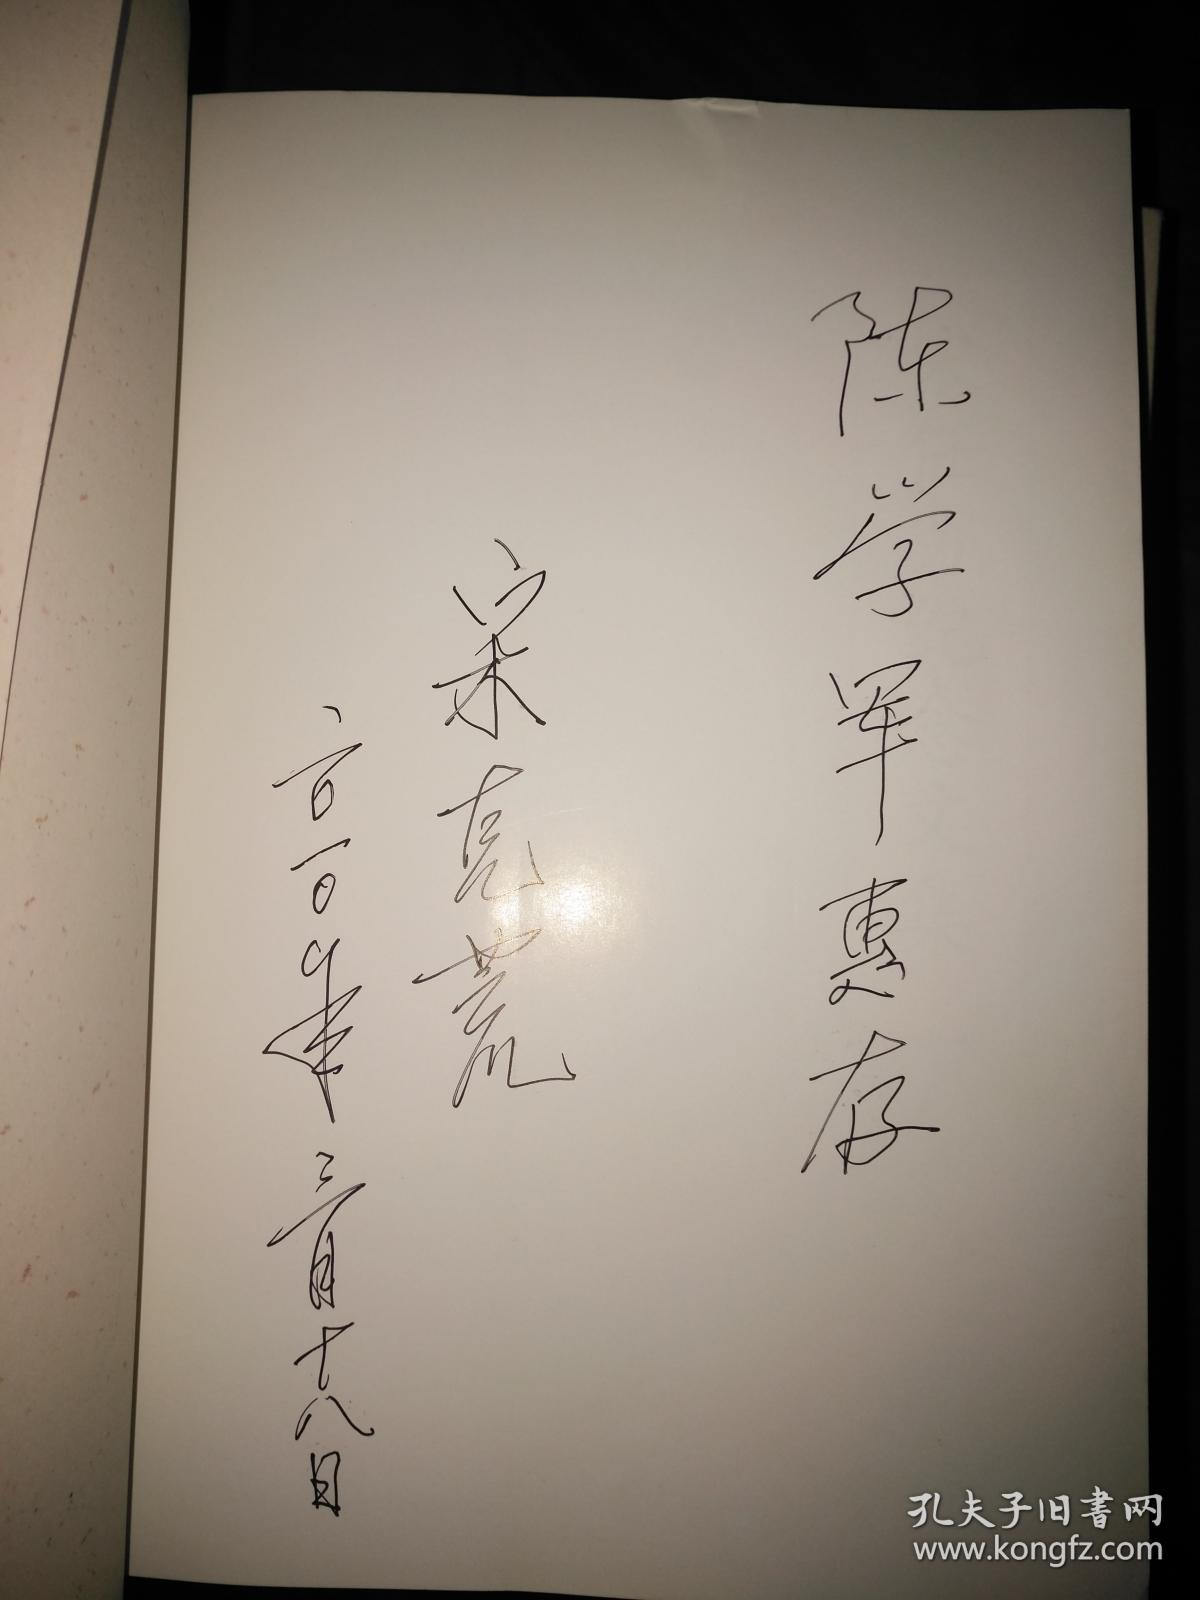 陈学军惠存
宋克荒
二〇一〇年三月十八日
孔夫子旧书网
www.kongfz.com